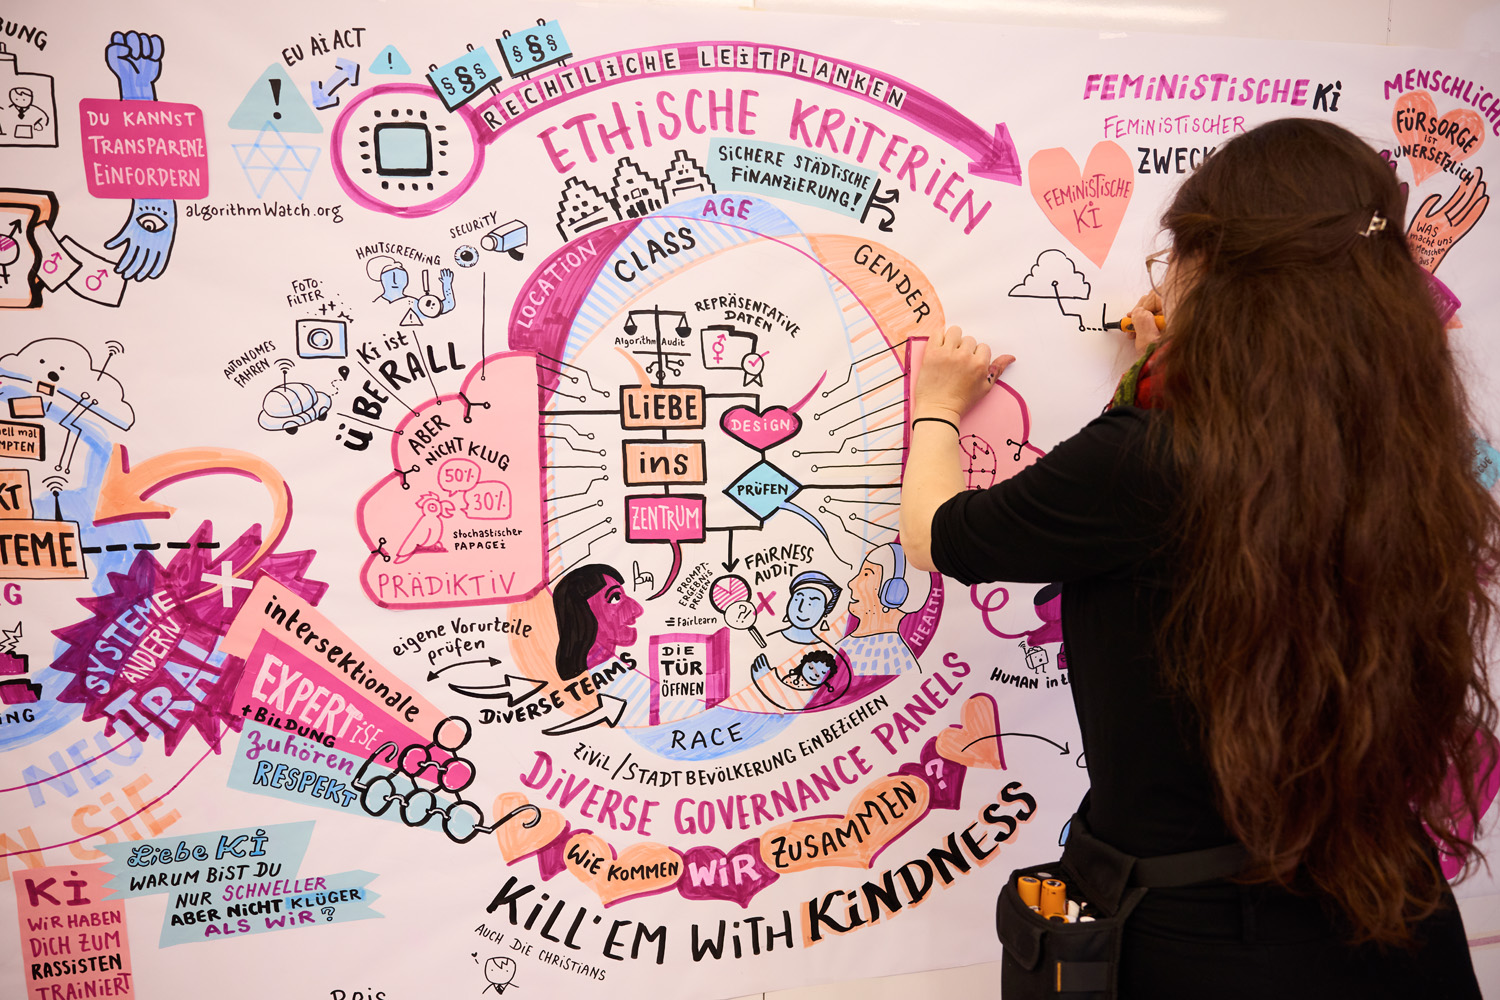 BUNG
DU KANNST
TRANSPARENZ
EINFORDERN
algorithmWatch.org
EU AI ACT
!
!
§§§
§§§
RECHTLICHE LEITPLANKEN
ETHISCHE KRITERIEN
SICHERE STÄDTISCHE
FINANZIERUNG!
FEMINISTISCHE KI
FEMINISTISCHER
ZWECK
FEMINISTISCHE
KI
MENSCHLICHE
FÜRSORGE
IST
UNERSETZLICH
WAS
macht uns
Menschen
aus?
SECURITY
HAUTSCREENING
FOTO-
FILTER
AUTONOMES
FAHREN
Ki ist
ÜBERALL
ABER
NICHT KLUG
50%
30%
stochastischer
PAPAGEI
PRÄDIKTIV
LOCATION
CLASS
AGE
GENDER
HEALTH
RACE
Algorithm Audit
REPRÄSENTATIVE
DATEN
LIEBE
ins
ZENTRUM
DESIGN
PRÜFEN
FAIRNESS
AUDIT
PROMPT-
ERGEBNIS
PRÜFEN
?!
= Fairlearn
DIE
TÜR
ÖFFNEN
eigene Vorurteile
prüfen
DIVERSE TEAMS
ZIVIL/STADTBEVÖLKERUNG EINBEZIEHEN
DIVERSE GOVERNANCE PANELS
WIE KOMMEN WIR ZUSAMMEN ?
KILL'EM WITH KINDNESS
AUCH DIE CHRISTIANS
HUMAN in t
KT
TEME
G
NG
SYSTEME
ÄNDERN
+
NEUTRAL
N SIE
intersektionale
EXPERTISE
+ BILDUNG
zuhören
RESPEKT
Liebe KI
WARUM BIST DU
NUR SCHNELLER
ABER NICHT KLÜGER
ALS WIR?
KI
WIR HABEN
DICH ZUM
RASSISTEN
TRAINIERT